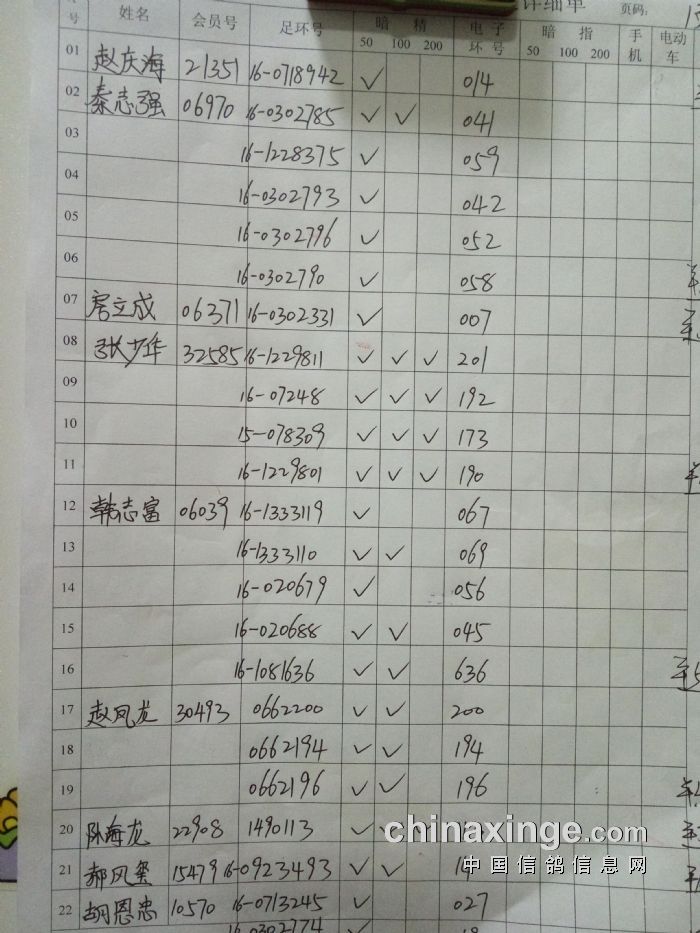 号 姓名 会员号 足环号 暗 精 50 100 200 电子环号 详细单 页码: 暗 指 50 100 200 手机 电动车
01 赵庆海 21351 16-0718942 ✓ 014
02 秦志强 06970 16-0302785 ✓ ✓ 041
03 16-1228375 ✓ 059
04 16-0302793 ✓ 042
05 16-0302796 ✓ 052
06 16-0302790 ✓ 058
07 房立成 06371 16-0302331 ✓ 007
08 张少华 32585 16-1229811 ✓ ✓ ✓ 201
09 16-07248 ✓ ✓ ✓ 192
10 15-078309 ✓ ✓ ✓ 173
11 16-1229801 ✓ ✓ ✓ 190
12 韩志富 06039 16-1333119 ✓ 067
13 16-1333110 ✓ ✓ 069
14 16-020679 ✓ 056
15 16-020688 ✓ ✓ 045
16 16-1081636 ✓ ✓ 636
17 赵凤龙 30493 0662200 ✓ ✓ 200
18 0662194 ✓ ✓ 194
19 0662196 ✓ ✓ 196
20 海龙 22908 1490113 ✓
chinaxinge.com
21 郝风玺 15479 16-0923493 ✓ ✓
中国信鸽信息网
22 胡恩忠 10570 16-0713245 ✓ 027
16-0302774 ✓